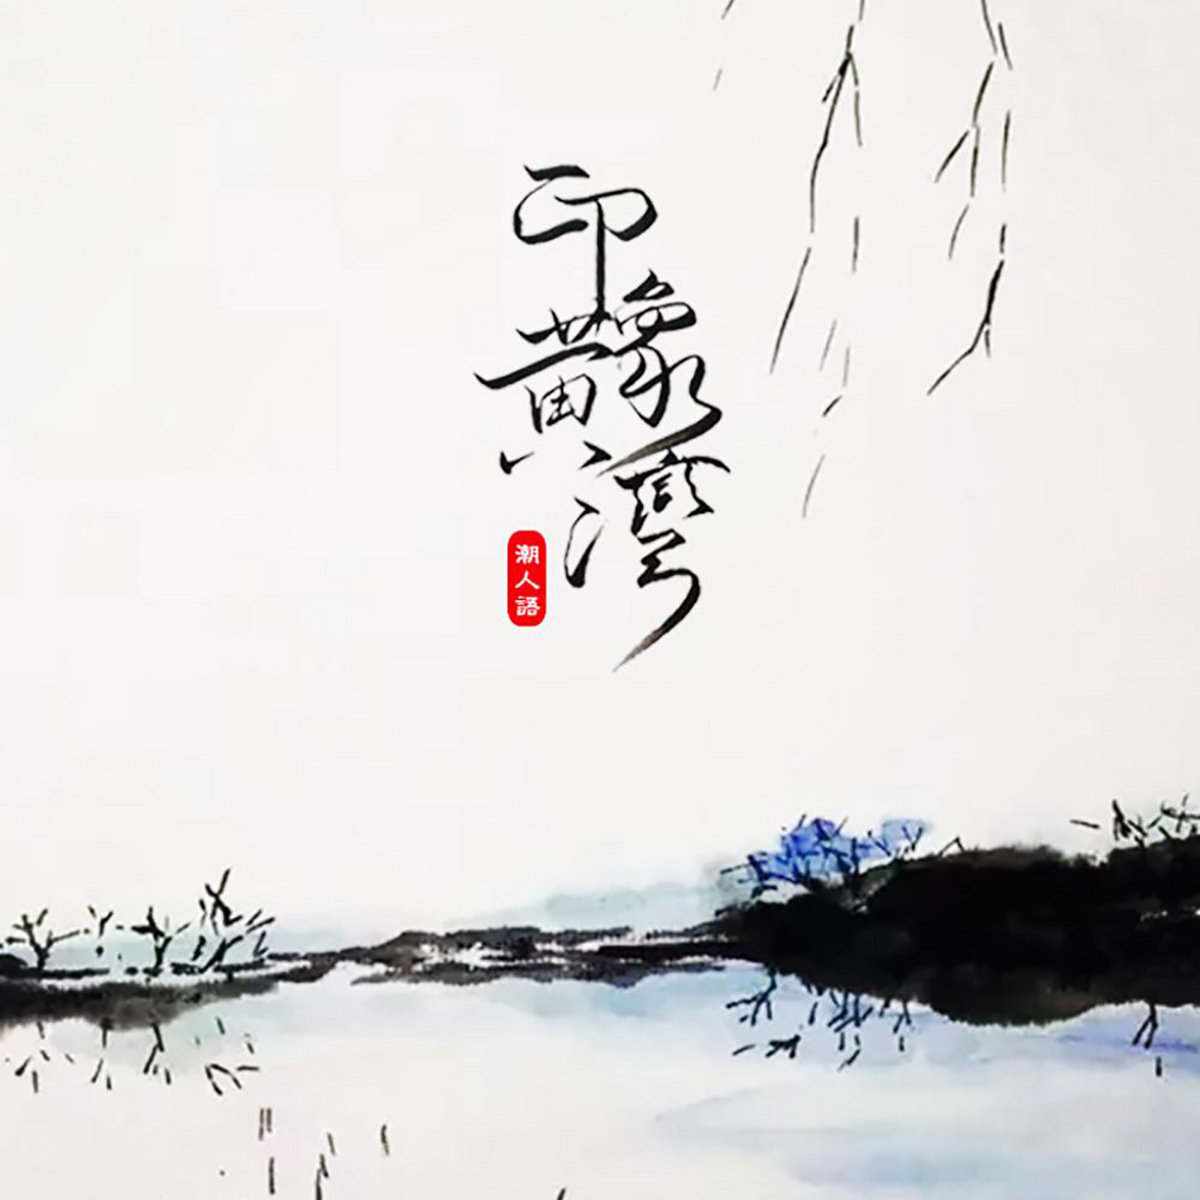 印象黄湾
潮人語